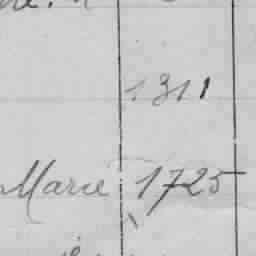 1311
Marie 1725